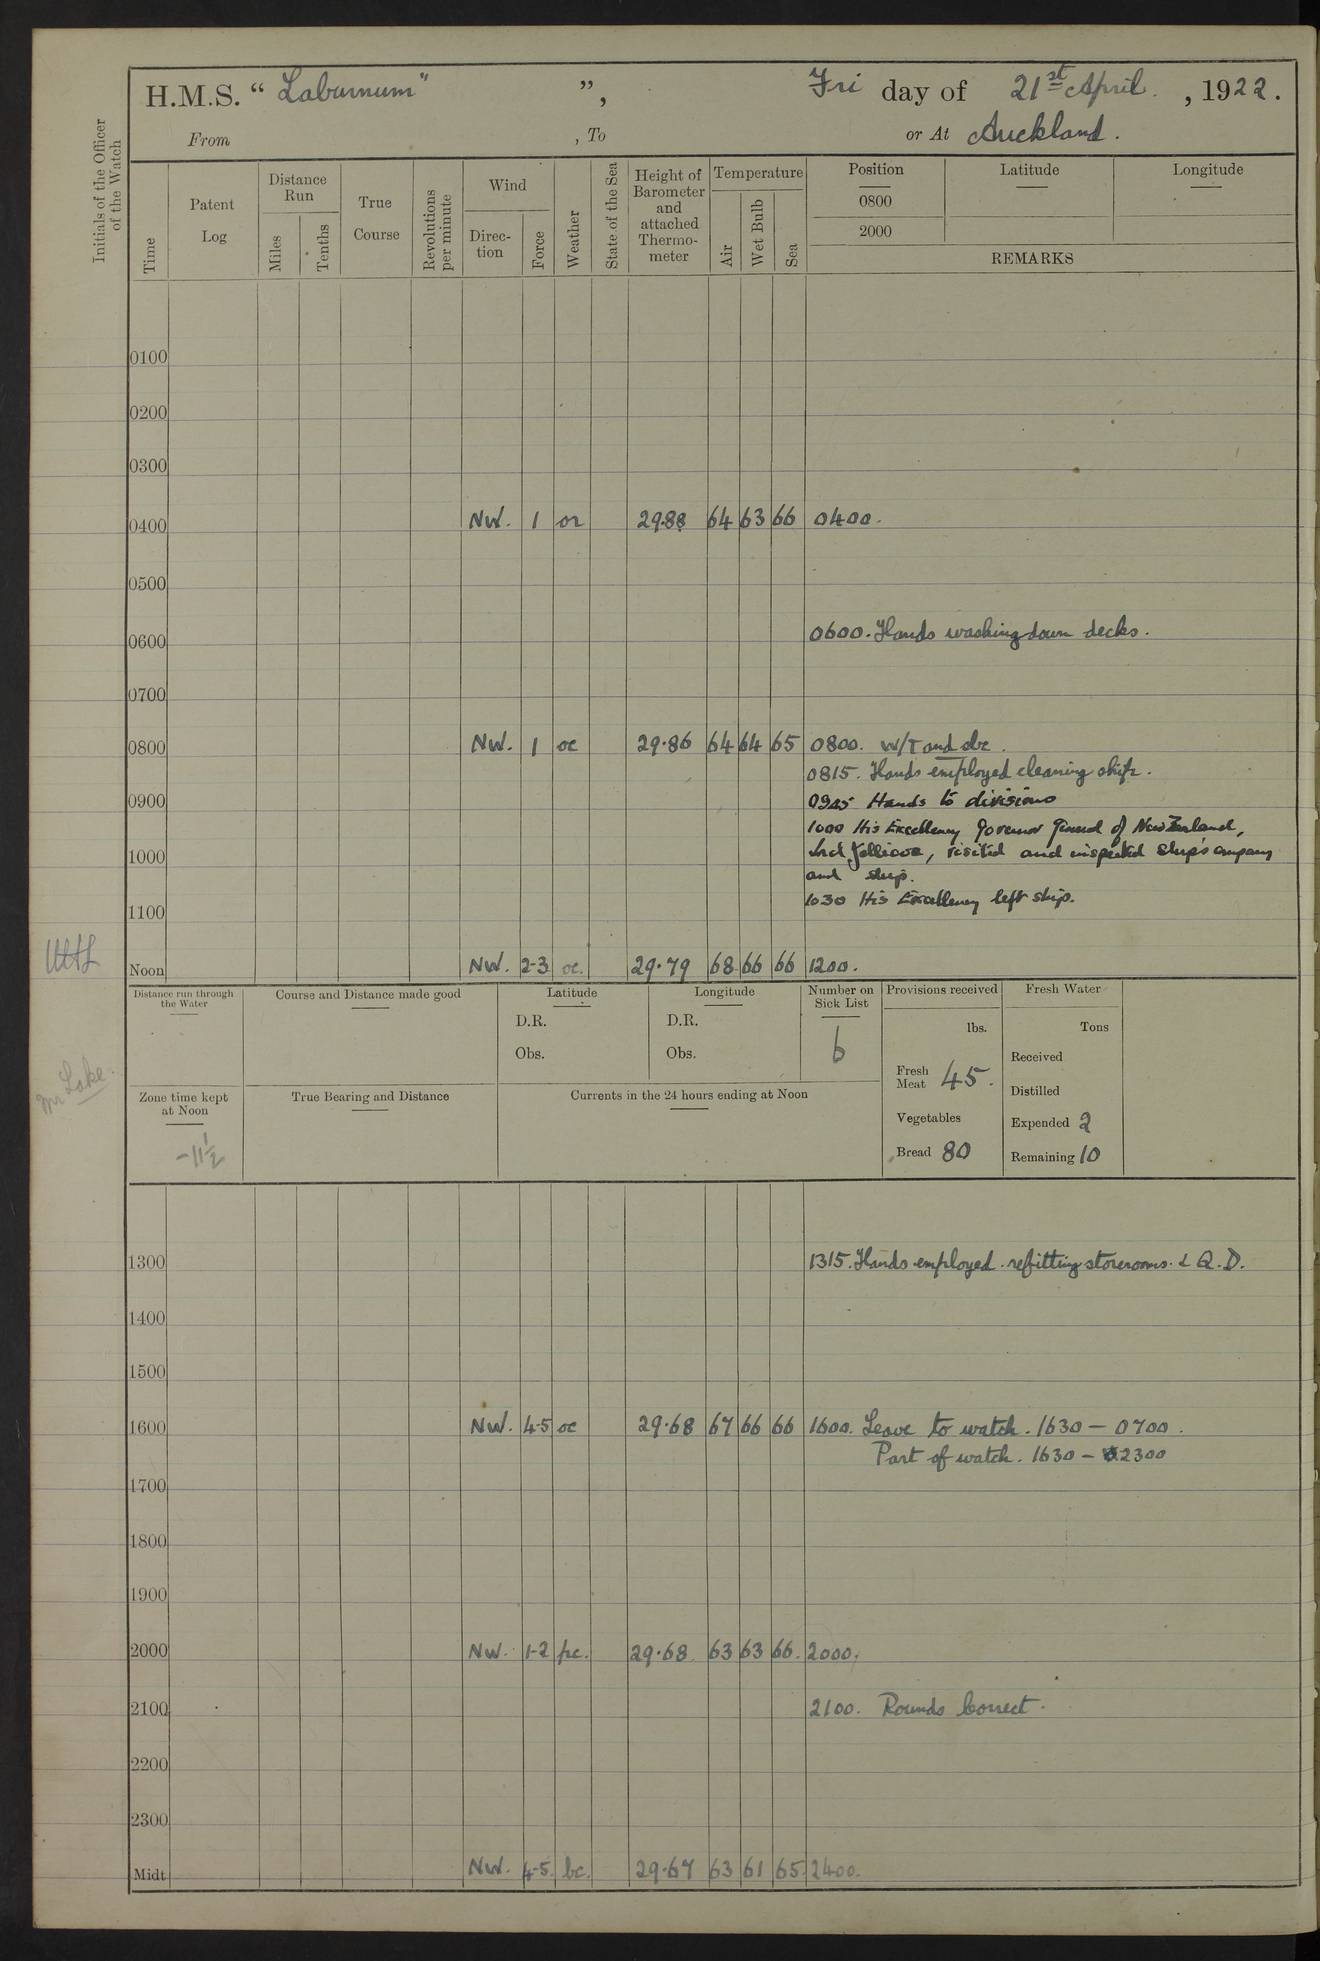 H.M.S. “ Laburnum" ”, Fri day of 21st April. , 1922.
From , To or At Auckland.
Initials of the Officer of the Watch
Time
Patent Log
Distance Run
Miles
Tenths
True Course
Revolutions per minute
Wind
Direc-tion
Force
Weather
State of the Sea
Height of Barometer and attached Thermo-meter
Temperature
Air
Wet Bulb
Sea
Position Latitude Longitude
0800
2000
REMARKS
0100
0200
0300
0400 NW. 1 or 29.88 64 63 66 0400.
0500
0600 0600. Hands washing down decks.
0700
0800 NW. 1 oc 29.86 64 64 65 0800. W/T and d.c.
0815. Hands employed cleaning ship.
0900 0945 Hands to divisions
1000 His Excellency Governor General of New Zealand,
1000 Lord Jellicoe, visited and inspected ship's company
and ship.
1030 His Excellency left ship.
1100
Noon NW. 2-3 oc. 29.79 68 66 66 1200.
Distance run through the Water
Course and Distance made good
Latitude
D.R.
Obs.
Longitude
D.R.
Obs.
Number on Sick List
6
Provisions received
lbs.
Fresh Meat 45.
Vegetables
Bread 80
Fresh Water
Tons
Received
Distilled
Expended 2
Remaining 10
Mr Lake.
Zone time kept at Noon
-11½
True Bearing and Distance
Currents in the 24 hours ending at Noon
1300 1315. Hands employed refitting storerooms & Q.D.
1400
1500
1600 NW. 4-5 oc 29.68 67 66 66 1600. Leave to watch. 1630 – 0700.
Part of watch. 1630 – 2300
1700
1800
1900
2000 NW. 1-2 pc. 29.68 63 63 66. 2000.
2100 2100. Rounds Correct.
2200
2300
Midt NW. 4-5. bc. 29.67 63 61 65. 2400.